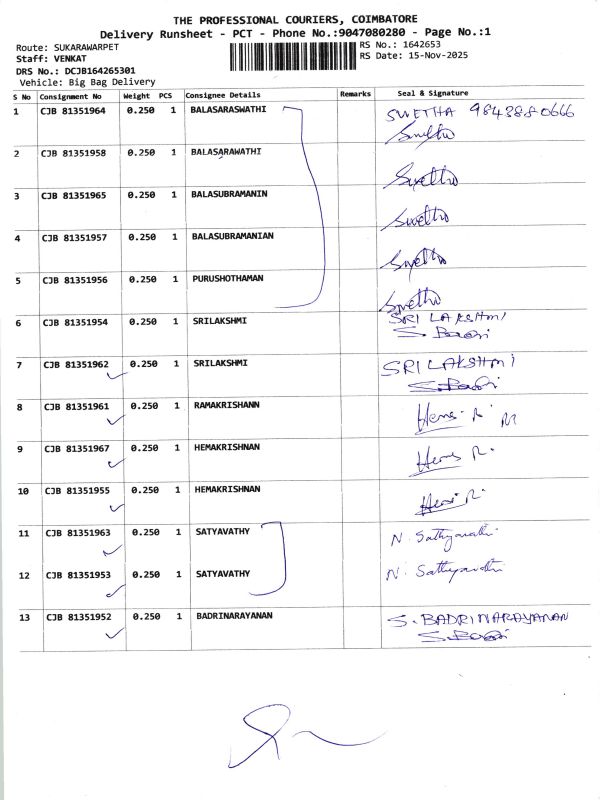 THE PROFESSIONAL COURIERS, COIMBATORE
Delivery Runsheet - PCT - Phone No.:9047080280 - Page No.:1
Route: SUKARAWARPET RS No.: 1642653
Staff: VENKAT RS Date: 15-Nov-2025
DRS No.: DCJB164265301
Vehicle: Big Bag Delivery
S No Consignment No Weight PCS Consignee Details Remarks Seal & Signature
1 CJB 81351964 0.250 1 BALASARASWATHI SWETHA 9843880666
Swetha
2 CJB 81351958 0.250 1 BALASARAWATHI Swetha
3 CJB 81351965 0.250 1 BALASUBRAMANIN Swetha
4 CJB 81351957 0.250 1 BALASUBRAMANIAN Swetha
5 CJB 81351956 0.250 1 PURUSHOTHAMAN Swetha
6 CJB 81351954 0.250 1 SRILAKSHMI SRI LAKSHMI
7 CJB 81351962 0.250 1 SRILAKSHMI SRI LAKSHMI
8 CJB 81351961 0.250 1 RAMAKRISHANN
9 CJB 81351967 0.250 1 HEMAKRISHNAN
10 CJB 81351955 0.250 1 HEMAKRISHNAN
11 CJB 81351963 0.250 1 SATYAVATHY N. Sathyavathi
12 CJB 81351953 0.250 1 SATYAVATHY N. Sathyavathi
13 CJB 81351952 0.250 1 BADRINARAYANAN S. BADRINARAYANAN